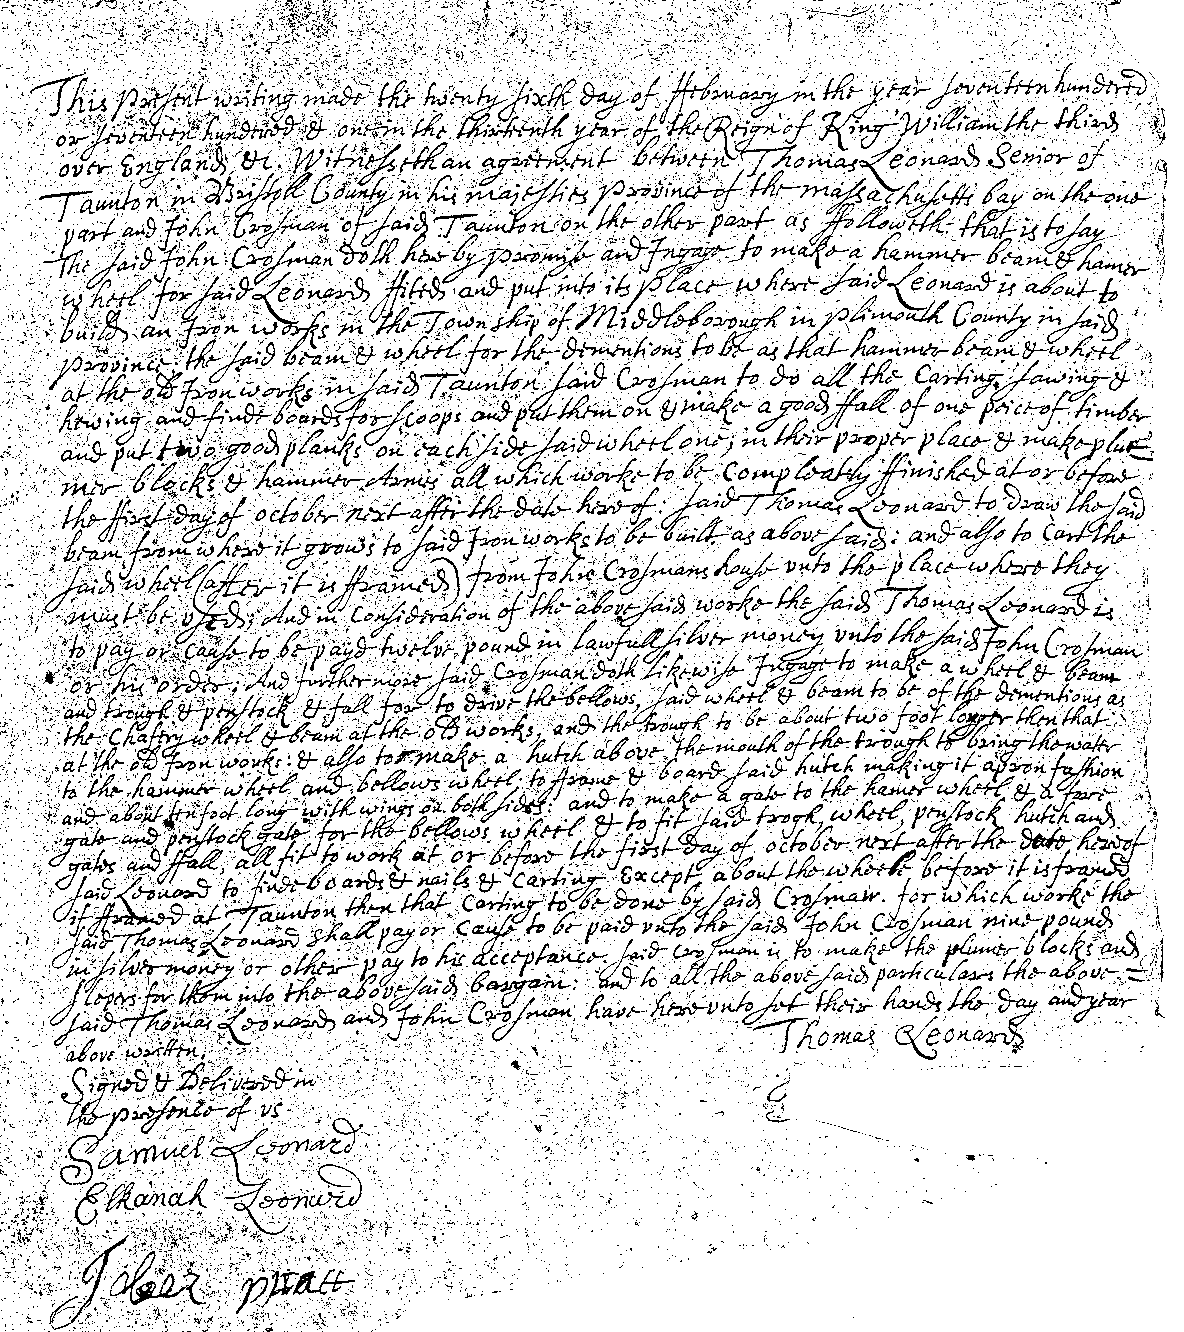 This present writing made the twenty sixth day of ffebruary in the year seventeen hundered
or seventeen hundered & one in the thirteenth year of the Reign of King William the third
over England &c. Witnesseth an agreement between Thomas Leonard Senior of
Taunton in Bristoll County in his majesties province of the massachusetts bay on the one
part and John Crosman of said Taunton on the other part as ffolloweth: that is to say
the said John Crosman doth here by promise and Ingage to make a hammer beam & hamer
wheel for said Leonard ffited and put into its place where said Leonard is about to
build an Iron works in the Township of Middleborough in plimouth County in said
province, the said beam & wheel for the dementions to be as that hammer beam & wheel
at the old Ironworks in said Taunton said Crosman to do all the Carting, sawing &
hewing and finde boards for scoops and put them on & make a good ffall of one peice of timber
and put two good planks on each side said wheel one, in their proper place & make plut
mer blocks & hammer Armes all which worke to be compleately ffinished at or before
the ffirst day of october next affter the date here of: said Thomas Leonard to draw the said
beam from where it grows to said Iron works to be built as above said: and also to Cart the
said wheel (affter it is fframed) from John Crosmans house unto the place where they
must be used; And in Consideration of the above said worke the said Thomas Leonard is
to pay or cause to be payd twelve pound in lawfull silver money unto the said John Crosman
or his order; And furthermore said Crosman doth likewise Ingage to make a wheel & beam
and trough & penstock & fall for to drive the bellows, said wheel & beam to be of the dementions as
the Chaffry wheel & beam at the old works, and the trough to be about two foot longer then that
at the old Iron works: & also to make a hutch above the mouth of the trough to bring the water
to the hammer wheel and bellows wheel, to frame & board said hutch making it apron fashion
and about ten foot long with wings on both sides: and to make a gate to the hamer wheel & a fore
gate and penstock gate for the bellows wheel & to fit said trogh, wheel, penstock hutch and
gates and ffall, all fit to work at or before the first day of october next affter the date hereof
said Leonard to finde boards & nails & Carting Except about the wheele before it is framed
if fframed at Taunton then that Carting to be done by said Crosman. for which worke the
said Thomas Leonard shall pay or cause to be paid unto the said John Crosman nine pound
in silver money or other pay to his acceptance. said Crosman is to make the plumer blocks and
slepers for them into the above said bargain: and to all the above said particulars the above =
said Thomas Leonard and John Crosman have here unto set their hands the day and year
above written. Thomas Leonard
Signed & Delivered in
the presence of us
Samuel Leonard
Elkanah Leonard
Jabez pratt